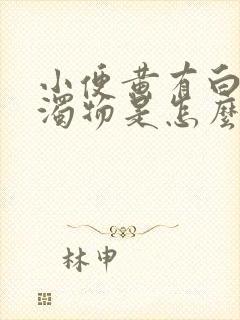 小便黄有白
濁物是怎麼
林申